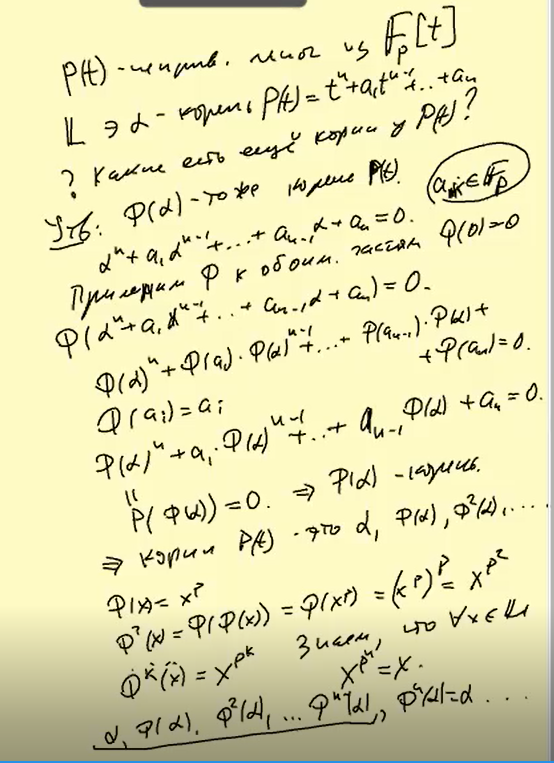 P(t) - неприв. мног из 𝔽_p[t]
𝕃 ∋ α - корень P(t) = t^n + a_1 t^{n-1} + ... + a_n
? Какие есть ещё корни у P(t)?
Утв: Φ(α) - тоже корень P(t). a_k ∈ 𝔽_p
α^n + a_1 α^{n-1} + ... + a_{n-1} α + a_n = 0.
Применим Φ к обоим частям Φ(0) = 0
Φ(α^n + a_1 α^{n-1} + ... + a_{n-1} α + a_n) = 0.
Φ(α)^n + Φ(a_1) · Φ(α)^{n-1} + ... + Φ(a_{n-1}) · Φ(α) +
+ Φ(a_n) = 0.
Φ(a_i) = a_i
Φ(α)^n + a_1 · Φ(α)^{n-1} + ... + a_{n-1} Φ(α) + a_n = 0.
"
P(Φ(α)) = 0. ⇒ Φ(α) - корень.
⇒ корни P(t) - это α, Φ(α), Φ²(α), ....
Φ(x) = x^p
Φ²(x) = Φ(Φ(x)) = Φ(x^p) = (x^p)^p = x^{p²}
Φ^k(x) = x^{p^k} Знаем, что ∀x ∈ 𝕃
x^{p^n} = x.
α, Φ(α), Φ²(α), ... Φ^{n-1}(α), Φ^n(α) = α ...